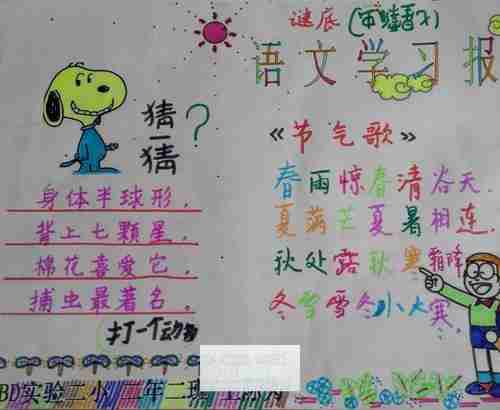 谜底
语文学习报
猜一猜?
身体半球形,
背上七颗星,
棉花喜爱它,
捕虫最著名。
打一个动物
《节气歌》
春雨惊春清谷天.
夏满芒夏暑相连.
秋处露秋寒霜降
冬雪雪冬小大寒.
BD实验二小 二年二班